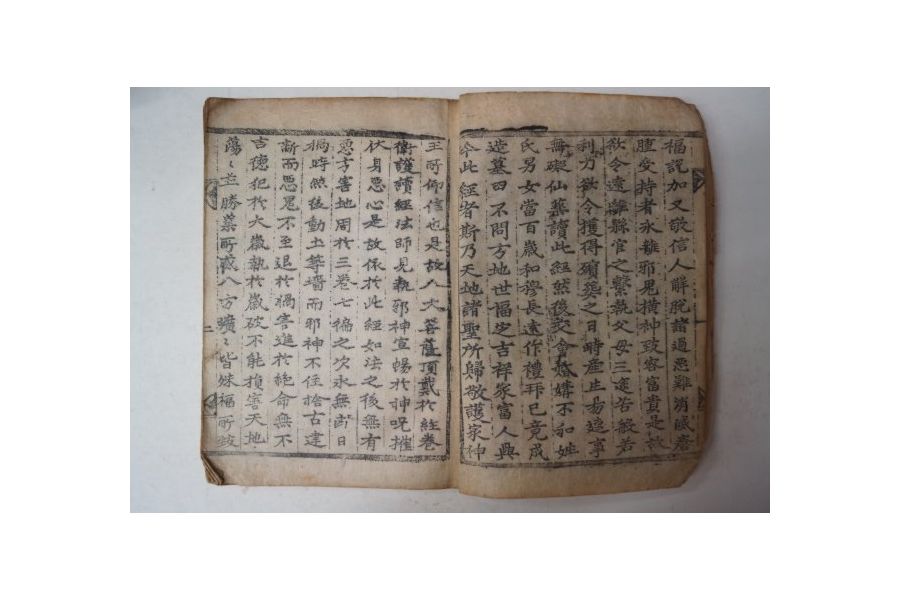 福說加又敬信人解脫諸過惡難消滅瘡
腫受持者永離邪鬼橫神致容富貴是故
欲令遠離縣官之繫執父母三途苦般若
利刀欲令獲得殯葬之日時產生易遂事
無礙仙藥讀此經然後交會婚媾不和姓
氏男女當百歲和穆長遠作禮拜已竟成
造墓田不問方地世福出吉祥家富人興
今此經者斯乃天地諸聖所歸敬護家神
王所仰信也是故八大菩薩頂戴於經卷
衛護讀經法師見執邪神宣暢於神呪摧
伏身惡心是故依於此經如法之後無有
惡方害地周於三卷七徧之次永無凶日
禍時然後動土等墻而邪神不侄捨古建
新而惡鬼不至退於禍害進於絶命無不
吉德犯於大歲執於歲破不能損害天地
蕩〻並勝藥所惑八方曠〻皆殊福所致
二